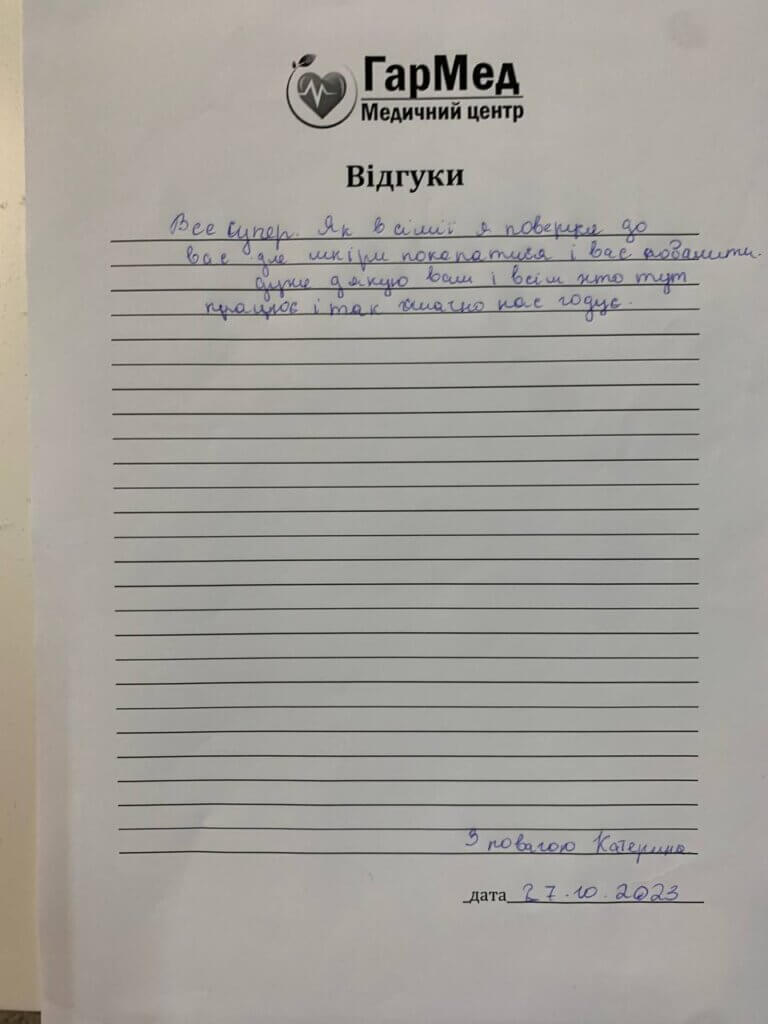 ГарМед
Медичний центр
Відгуки
Все супер. Як в сімії я поверну до
вас для шкіри покапатися і вас побачити.
дуже дякую вам і всім хто тут
працює і так смачно нас годує.
З повагою Катерина
дата 27.10.2023